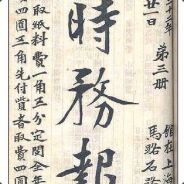 十二年
廿日
第三册
館在上海
馬路石路
時務報
取紙料費一角三分定閱全年
四圓三角先付費者取費四圓